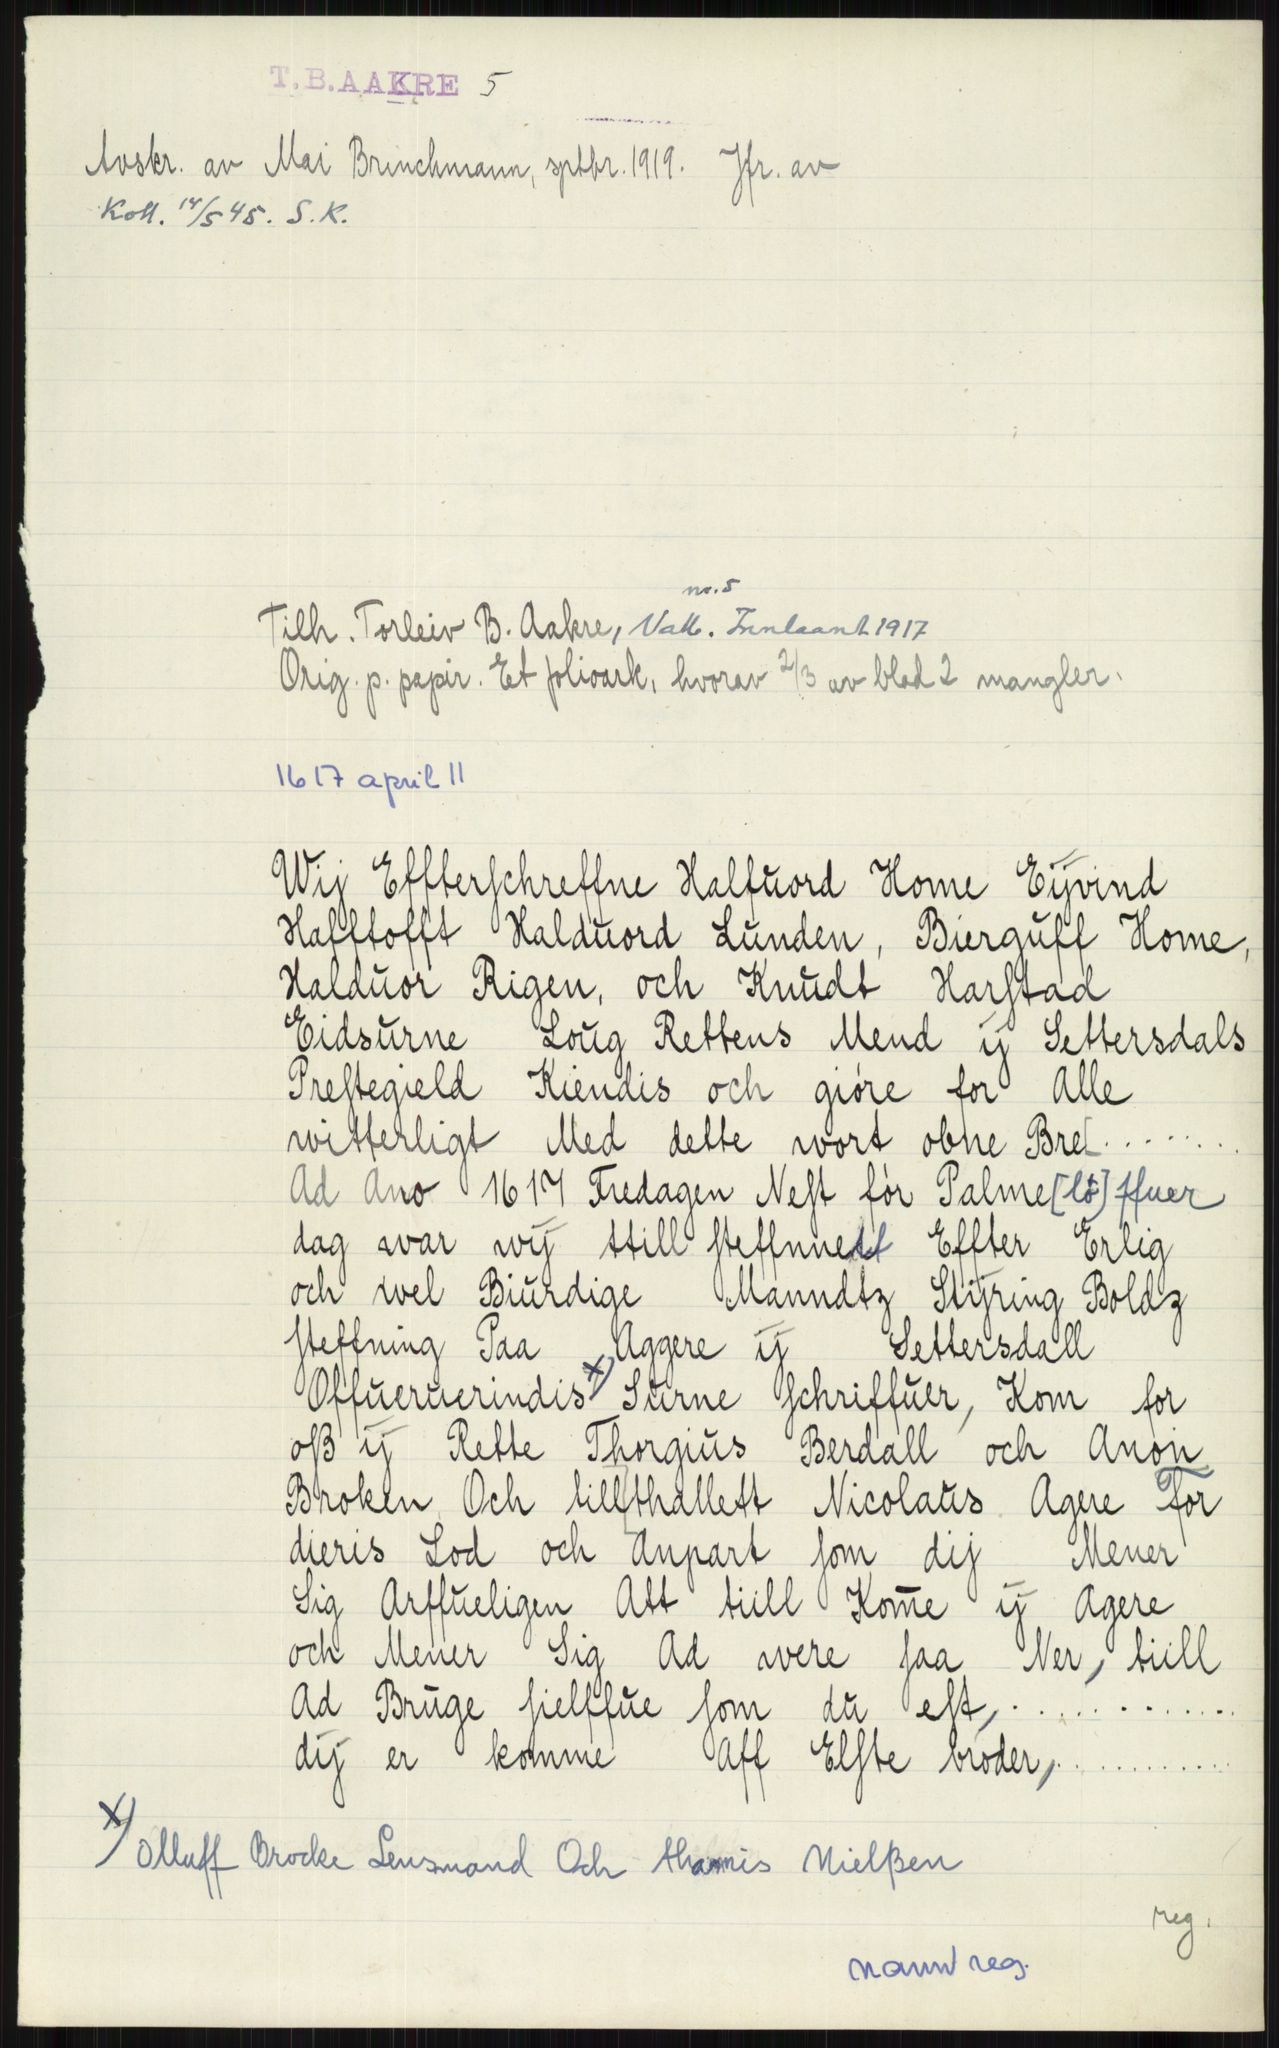 T.B.AAKRE 5
Avskr. av Mai Brinchmann, sptbr. 1919. Jfr. av
Koll. 14/5 45. S.K.
nr. 5
Tilh. Torleiv B. Aakre, Valle. Innlaant 1917
Orig. p. papir. Et folioark, hvorav 2/3 av blad 2 mangler.
1617 april 11
Wij Effterschreffne Halfuord Home Eijvind
Hafftofft Halduord Lunden, Bierguff Home,
Halduor Rigen, och Knudt Harstad
Eidsurne Loug Rettens Mend ij Settersdals
Prestegield Kiendis och giöre for Alle
witterligt Med dette wort obne Bre[........
Ad Ano 1617 Fredagen Nest för Palme[lö]ffuer
dag war wij ttill steffnnedt Effter Erlig
och wel Biurdige Manndtz Stijring Boldz
steffning Paa Aggere ij Settersdall
Offueruerindis x) Surne schriffuer, Kom for
oß ij Rette Thorgius Berdall och Anon
Broken Och tillthallett Nicolaus Agere For
dieris Lod och Anpart som dij Mener
Sig Arffueligen Att tiill Kom̄e ij Agere
och Mener Sig Ad were saa Ner, tiill
Ad Bruge sielffue som du est,............
dij er komme Aff Elste broder,............
x) Olluff Brocke Lensmand Och thamis Nielßen
reg.
navnreg.